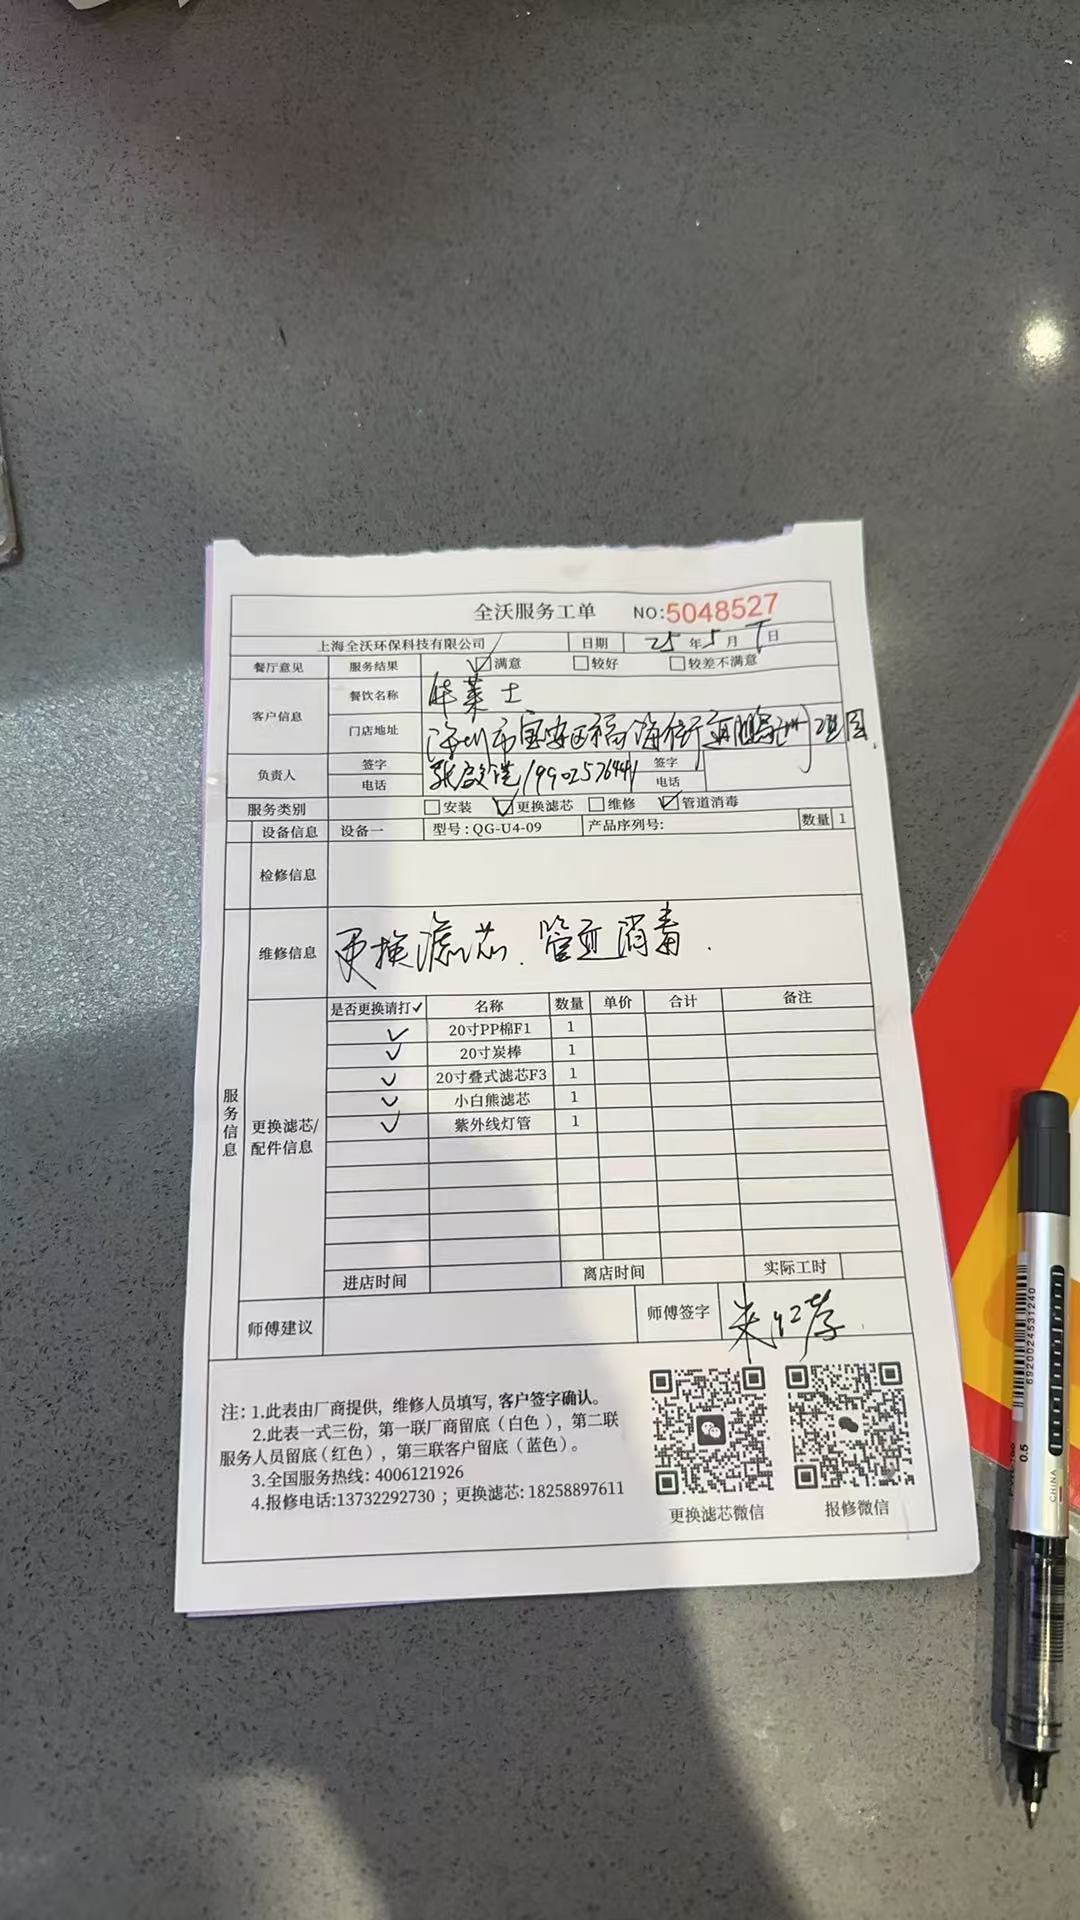 全沃服务工单 NO:5048527
上海全沃环保科技有限公司 日期 25年5月 日
餐厅意见 服务结果 ☑满意 □较好 □较差不满意
客户信息 餐饮名称 华莱士
门店地址 深圳市宝安区福海街
负责人 签字 签字
电话 电话
服务类别 □安装 ☑更换滤芯 □维修 ☑管道消毒
设备信息 设备一 型号:QG-U4-09 产品序列号: 数量 1
检修信息
维修信息 更换滤芯.管道消毒.
服务信息
更换滤芯/配件信息
是否更换请打✓ 名称 数量 单价 合计 备注
✓ 20寸PP棉F1 1
✓ 20寸炭棒 1
✓ 20寸叠式滤芯F3 1
✓ 小白熊滤芯 1
✓ 紫外线灯管 1
进店时间 离店时间 实际工时
师傅建议 师傅签字
注: 1.此表由厂商提供, 维修人员填写, 客户签字确认。
2.此表一式三份, 第一联厂商留底(白色), 第二联
服务人员留底(红色), 第三联客户留底(蓝色)。
3.全国服务热线: 4006121926
4.报修电话:13732292730 ; 更换滤芯: 18258897611
更换滤芯微信 报修微信
6920024531240
0.5
CHINA